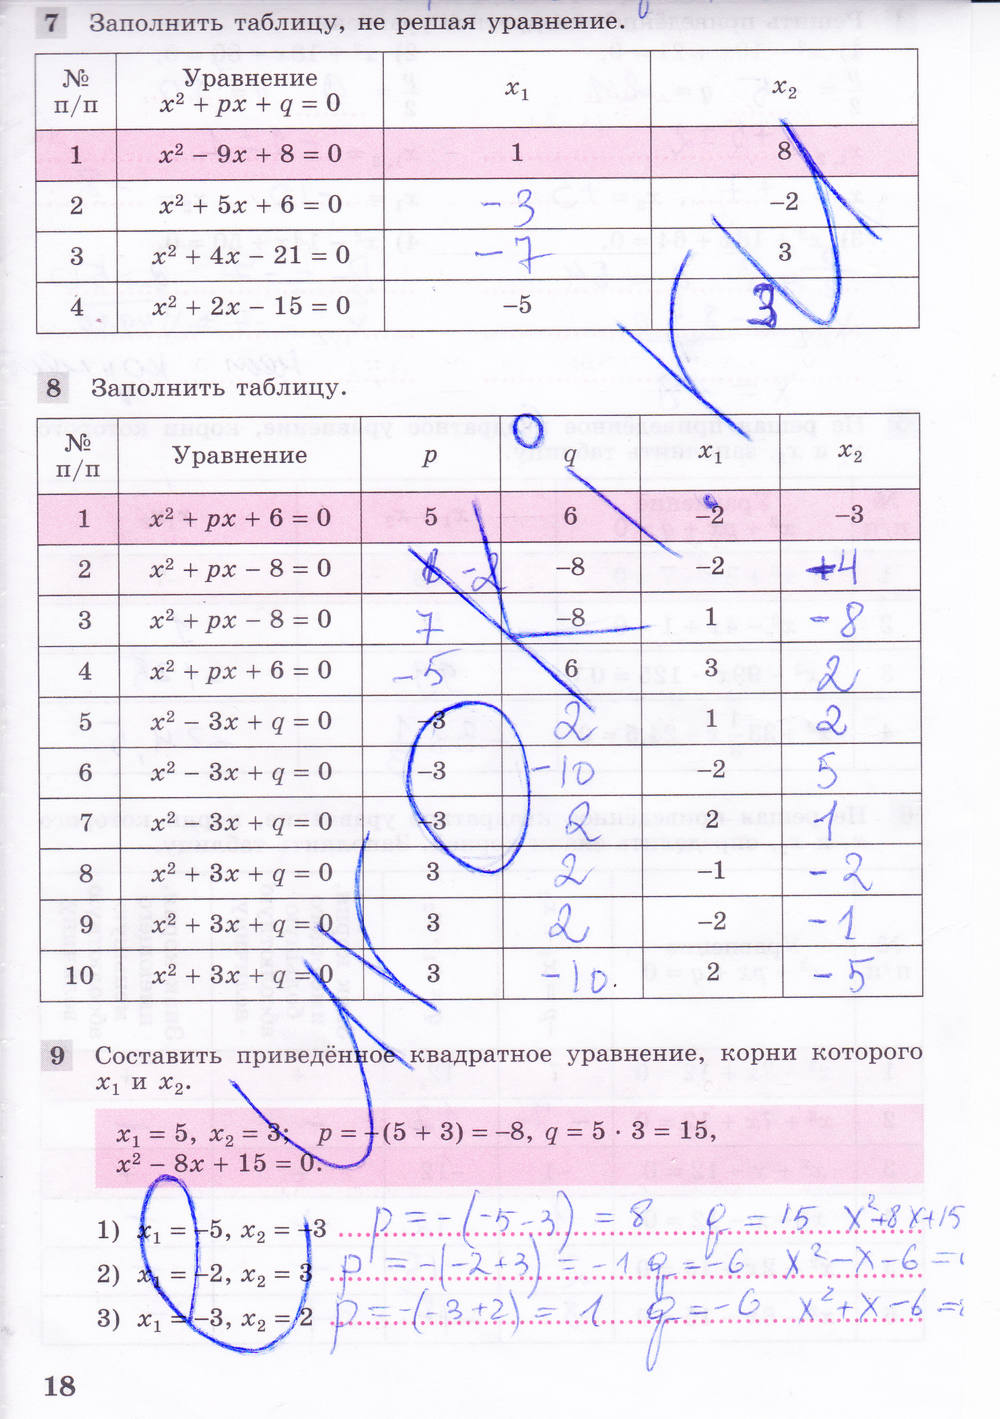 7 Заполнить таблицу, не решая уравнение.
№ п/п Уравнение x² + px + q = 0 x₁ x₂
1 x² − 9x + 8 = 0 1 8
2 x² + 5x + 6 = 0 −3 −2
3 x² + 4x − 21 = 0 −7 3
4 x² + 2x − 15 = 0 −5 3
8 Заполнить таблицу.
№ п/п Уравнение p q x₁ x₂
1 x² + px + 6 = 0 5 6 −2 −3
2 x² + px − 8 = 0 −2 −8 −2 +4
3 x² + px − 8 = 0 7 −8 1 −8
4 x² + px + 6 = 0 −5 6 3 2
5 x² − 3x + q = 0 −3 2 1 2
6 x² − 3x + q = 0 −3 −10 −2 5
7 x² − 3x + q = 0 −3 2 2 1
8 x² + 3x + q = 0 3 2 −1 −2
9 x² + 3x + q = 0 3 2 −2 −1
10 x² + 3x + q = 0 3 −10. 2 −5
9 Составить приведённое квадратное уравнение, корни которого
x₁ и x₂.
x₁ = 5, x₂ = 3; p = −(5 + 3) = −8, q = 5 · 3 = 15,
x² − 8x + 15 = 0.
1) x₁ = −5, x₂ = −3 p = −(−5−3) = 8 q = 15 x²+8x+15
2) x₁ = −2, x₂ = 3 p = −(−2+3) = −1 q = −6 x²−x−6 =
3) x₁ = −3, x₂ = 2 p = −(−3+2) = 1 q = −6 x²+x−6 =
18